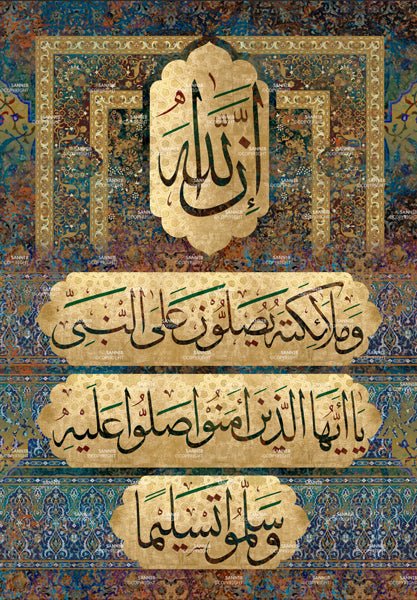 إن الله
وملائكته يصلون على النبي
يا أيها الذين امنوا صلوا عليه
وسلموا تسليما
SANNER
©COPYRIGHT